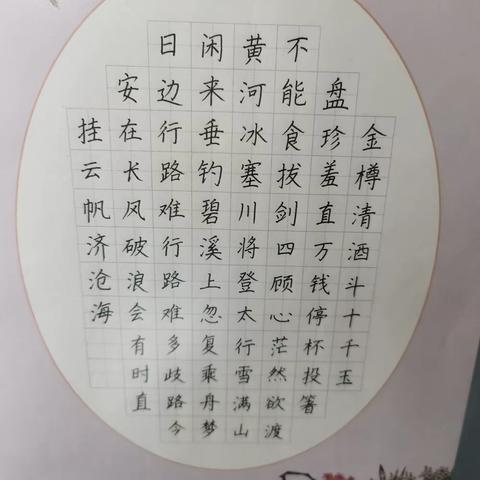 金樽清酒斗十千玉
盘珍羞直万钱停杯投箸
不能食拔剑四顾心茫然欲渡
黄河冰塞川将登太行雪满山
闲来垂钓碧溪上忽复乘舟梦
日边行路难行路难多歧路今
安在长风破浪会有时直
挂云帆济沧海